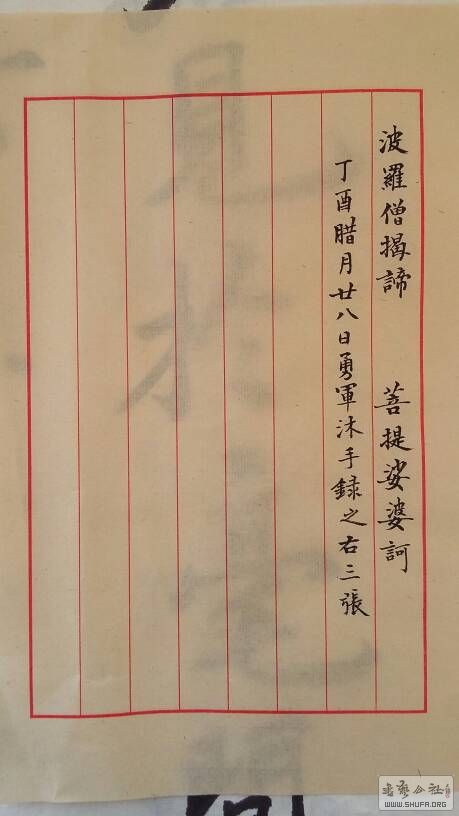 波羅僧揭諦 菩提娑婆訶
丁酉腊月廿八日勇軍沐手録之右三張
書藝公社
WWW.SHUFA.ORG